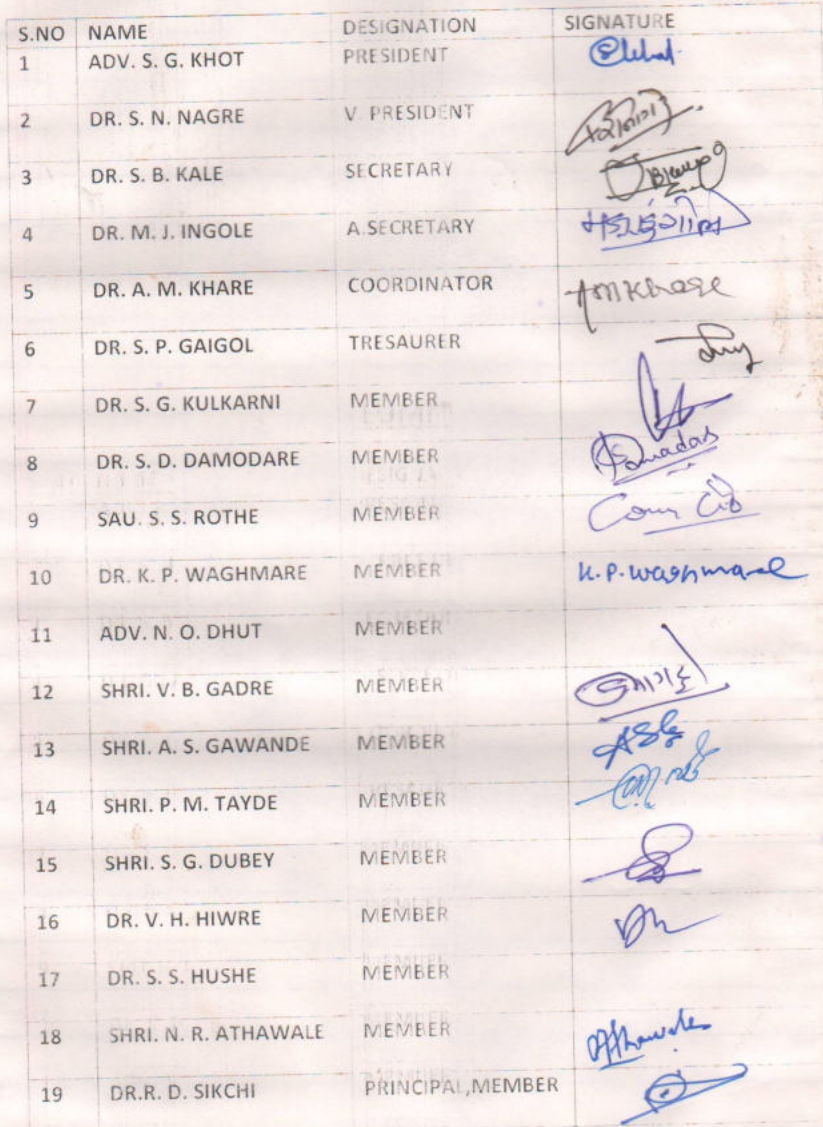 S.NO NAME DESIGNATION SIGNATURE
1 ADV. S. G. KHOT PRESIDENT
2 DR. S. N. NAGRE V. PRESIDENT
3 DR. S. B. KALE SECRETARY
4 DR. M. J. INGOLE A.SECRETARY
5 DR. A. M. KHARE COORDINATOR AMKhare
6 DR. S. P. GAIGOL TRESAURER
7 DR. S. G. KULKARNI MEMBER
8 DR. S. D. DAMODARE MEMBER
9 SAU. S. S. ROTHE MEMBER
10 DR. K. P. WAGHMARE MEMBER K.P.Waghmare
11 ADV. N. O. DHUT MEMBER
12 SHRI. V. B. GADRE MEMBER
13 SHRI. A. S. GAWANDE MEMBER
14 SHRI. P. M. TAYDE MEMBER
15 SHRI. S. G. DUBEY MEMBER
16 DR. V. H. HIWRE MEMBER
17 DR. S. S. HUSHE MEMBER
18 SHRI. N. R. ATHAWALE MEMBER
19 DR.R. D. SIKCHI PRINCIPAL,MEMBER